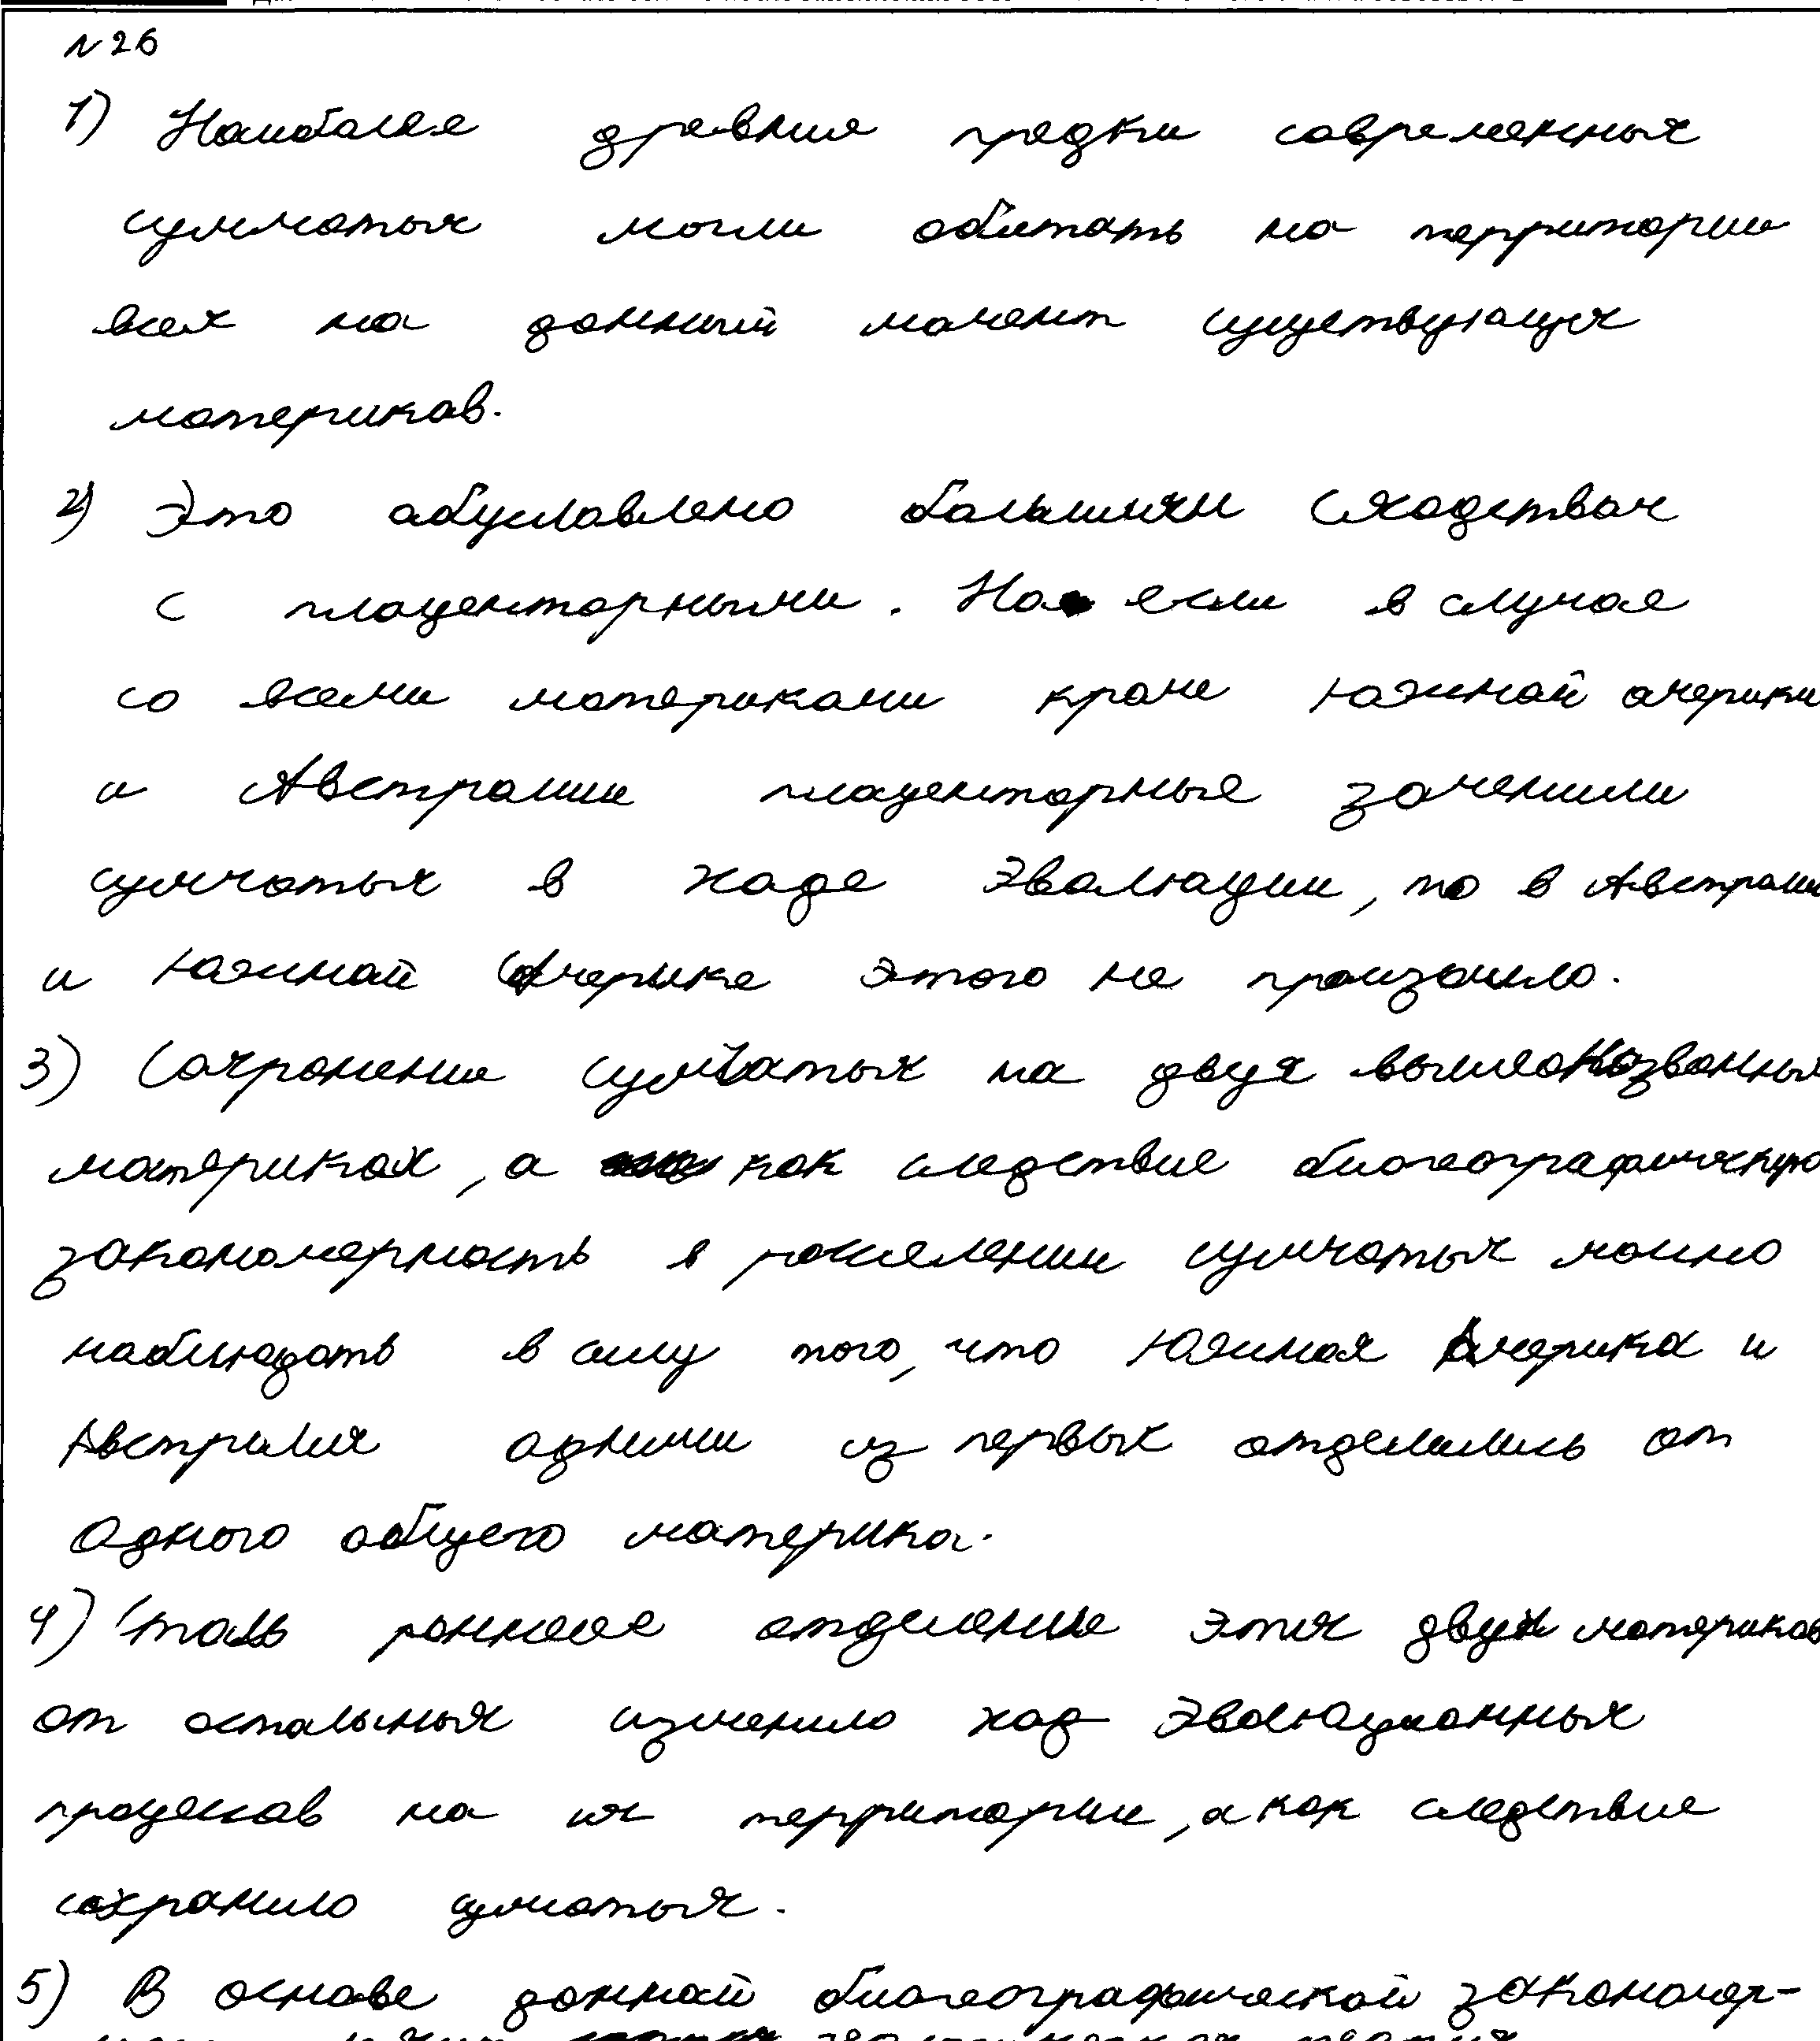 №26
1) Наиболее древние предки современных
сумчатых могли обитать на территории
всех на данный момент существующих
материков.
2) Это обусловлено большим сходством
с плацентарными. Но если в случае
со всеми материками кроме Южной америки
и Австралии плацентарные заменили
сумчатых в ходе эволюции, то в Австралии
и Южной Америке этого не произошло.
3) Сохранение сумчатых на двух вышеназванных
материках, а как следствие биогеографическую
закономерность в расселении сумчатых можно
наблюдать в силу того, что Южная Америка и
Австралия одними из первых отделились от
одного общего материка.
4) Столь раннее отделение этих двух материков
от остальных изменило ход эволюционных
процессов на их территории, а как следствие
сохранило сумчатых.
5) В основе данной биогеографической закономер-